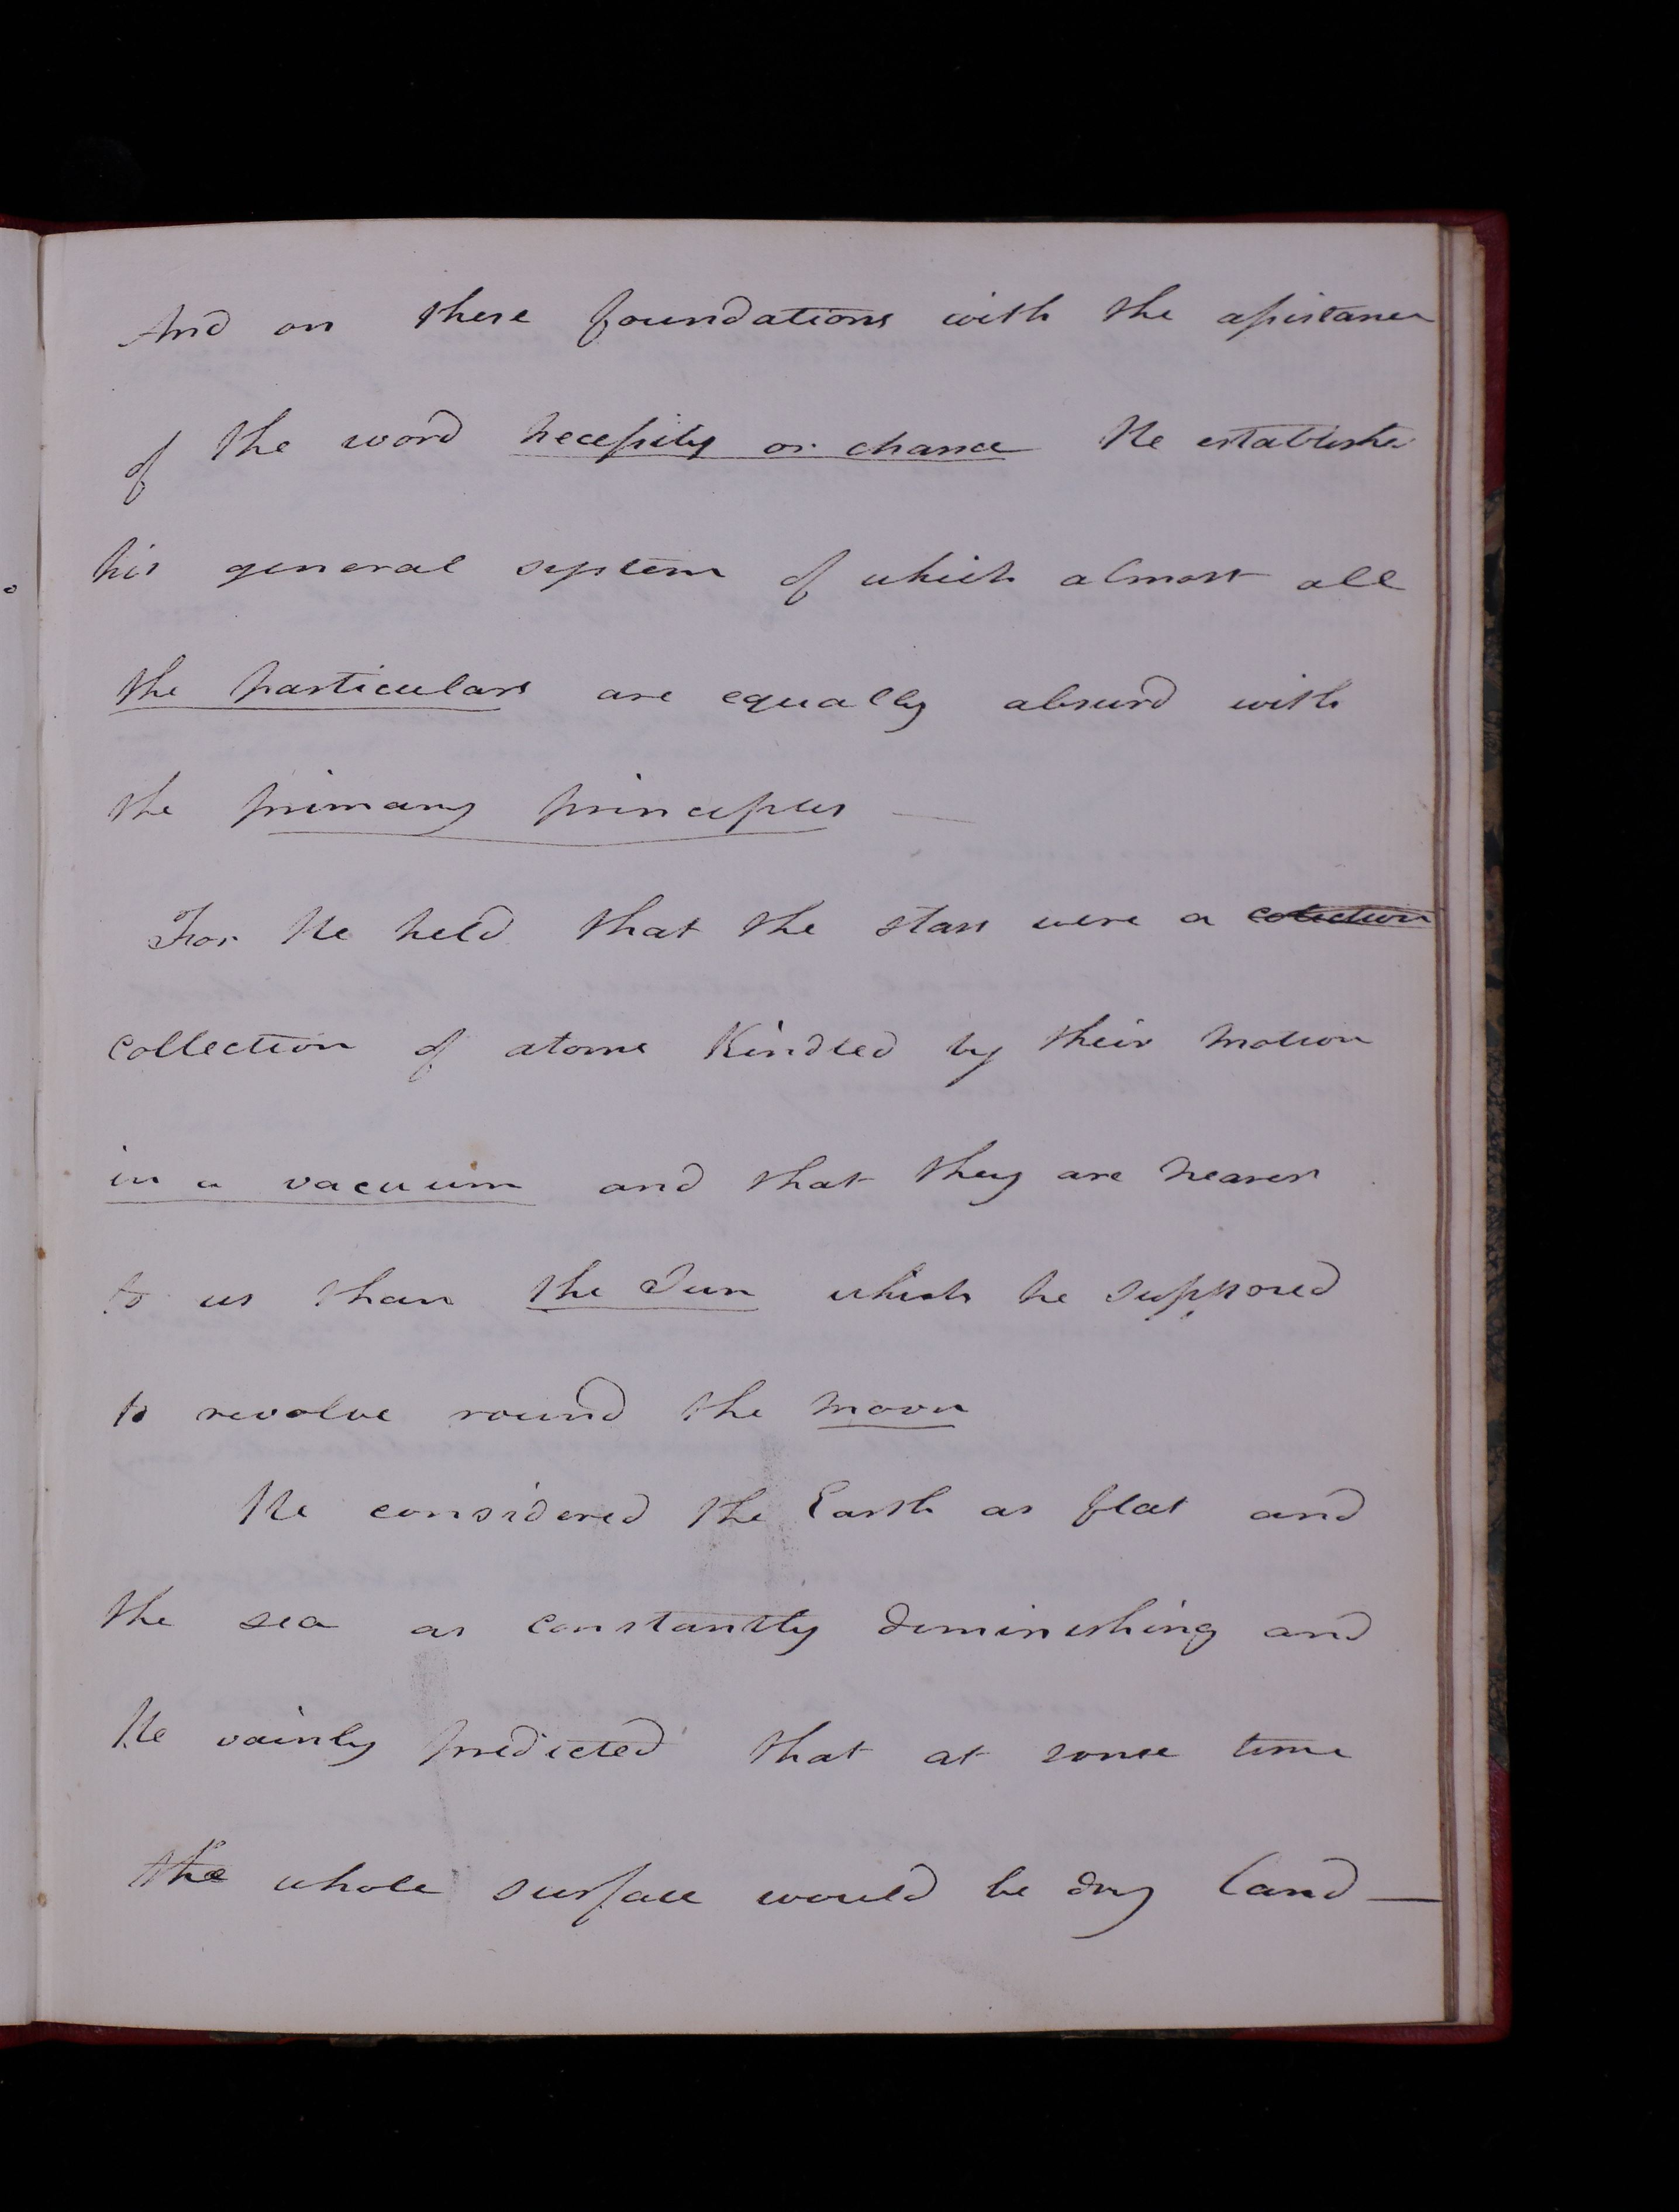 And on these foundations with the assistance
of the word necessity or chance He establishe
his general system of which almost all
the particulars are equally absurd with
the primary principles —
For He held that the stars were a colection
collection of atoms Kindled by their motion
in a vacuum and that they are nearer
to us than the Sun which he supposed
to revolve round the moon
He considered the Earth as flat and
the sea as constantly diminishing and
He vainly predicted that at some time
the whole surface would be dry land —